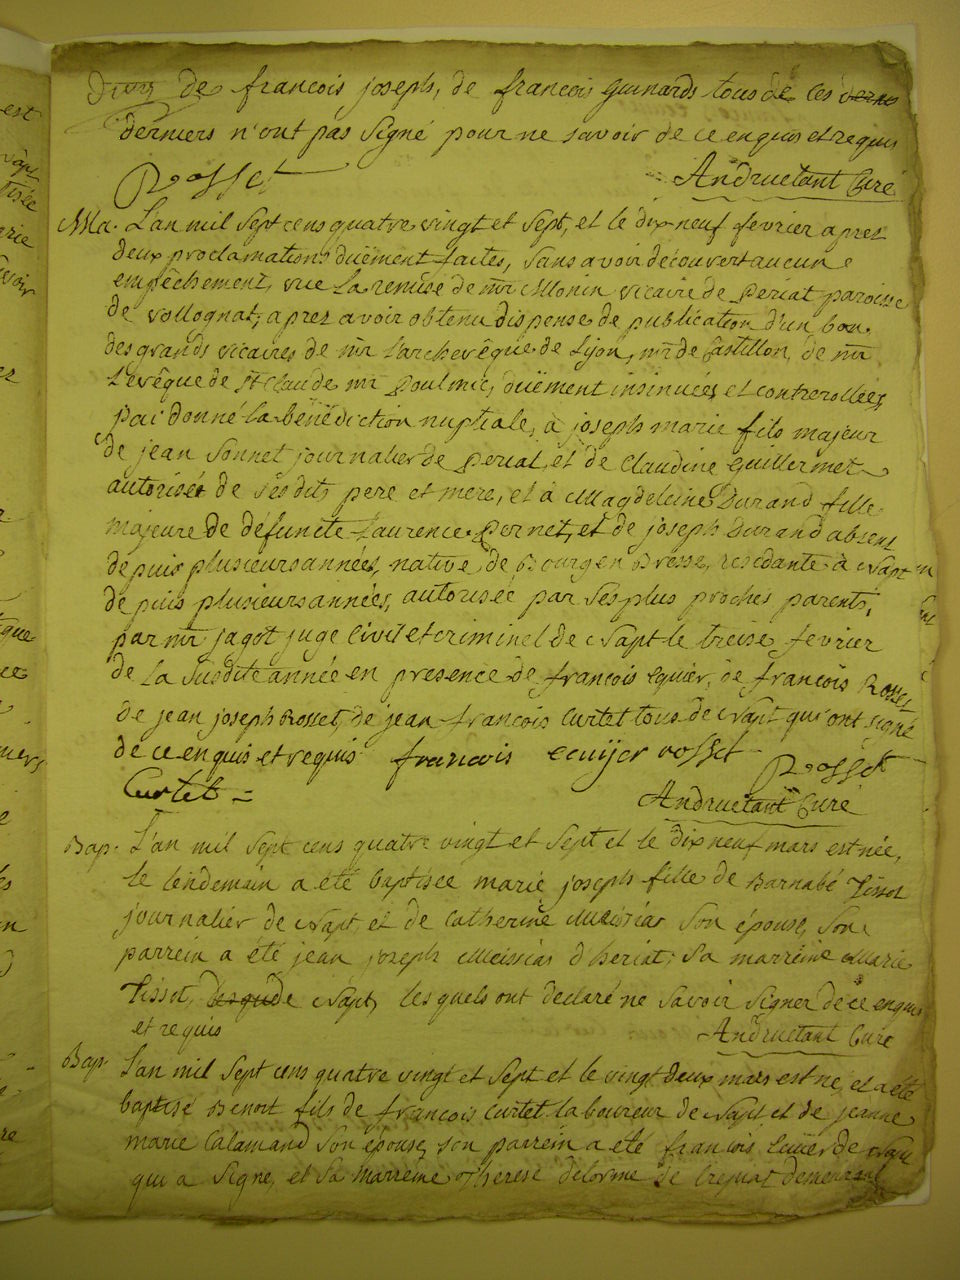 de francois joseph, de francois Guinards tous de ces
derniers n'ont pas signé pour ne savoir de ce enquis et requis
Rosset Andruetant Curé
Ma. L'an mil sept cens quatre vingt et sept, et le dix neuf fevrier aprez
deux proclamations duëment faites, sans avoir découvert aucun
empêchement, vue la remise de mr Monin vicaire de Periat paroisse
de vollognat, aprez avoir obtenu dispense de publication d'un ban
des grands vicaires de mr l'archevêque de Lijon, mr de Castillon, de mr
l'evêque de St Claude mr Poulmic, duëment insinuées et controrollées,
j'ai donné la bénédiction nuptiale, à joseph marie fils majeur
de jean Sonnet journalier de Periat, et de Claudine Guillermet
autorisé de sesdits pere et mere, et à Magdeleine Durand fille
majeure de défuncte Laurence Pernet, et de joseph Durand absent
depuis plusieurs années, native de Bourg en Bresse, residante à Napt
depuis plusieurs années, autorisée par ses plus proches parents,
par mr jagot juge Civil et criminel de Napt le treise fevrier
de la susdite année en presence de francois equier, de francois Rosset
de jean joseph Rosset, de jean francois Curtet tous de Napt qui ont signé
de ce enquis et requis francois ecuijer rosset Rosset
Curtet = Andruetant Curé
Bap. L'an mil sept cens quatre vingt et sept et le dix neuf mars est née,
le lendemain a été baptisée marie joseph fille de Barnabé Tissot
journalier de Napt et de Catherine Meissiar son épouse, son
parrein a été jean joseph Meissiar d'heriat, sa marreine Marie
Tissot, de Napt, lesquels ont declaré ne savoir signer de ce enquis
et requis Andruetant Curé
Bap. L'an mil sept cens quatre vingt et sept et le vingt deux mars est né, et a été
baptisé Benoit fils de francois Curtet laboureur de Napt, et de jeanne
marie Calamand son épouse, son parrein a été francois Ecuier de Napt
qui a signé, et sa marreine therese delorme de